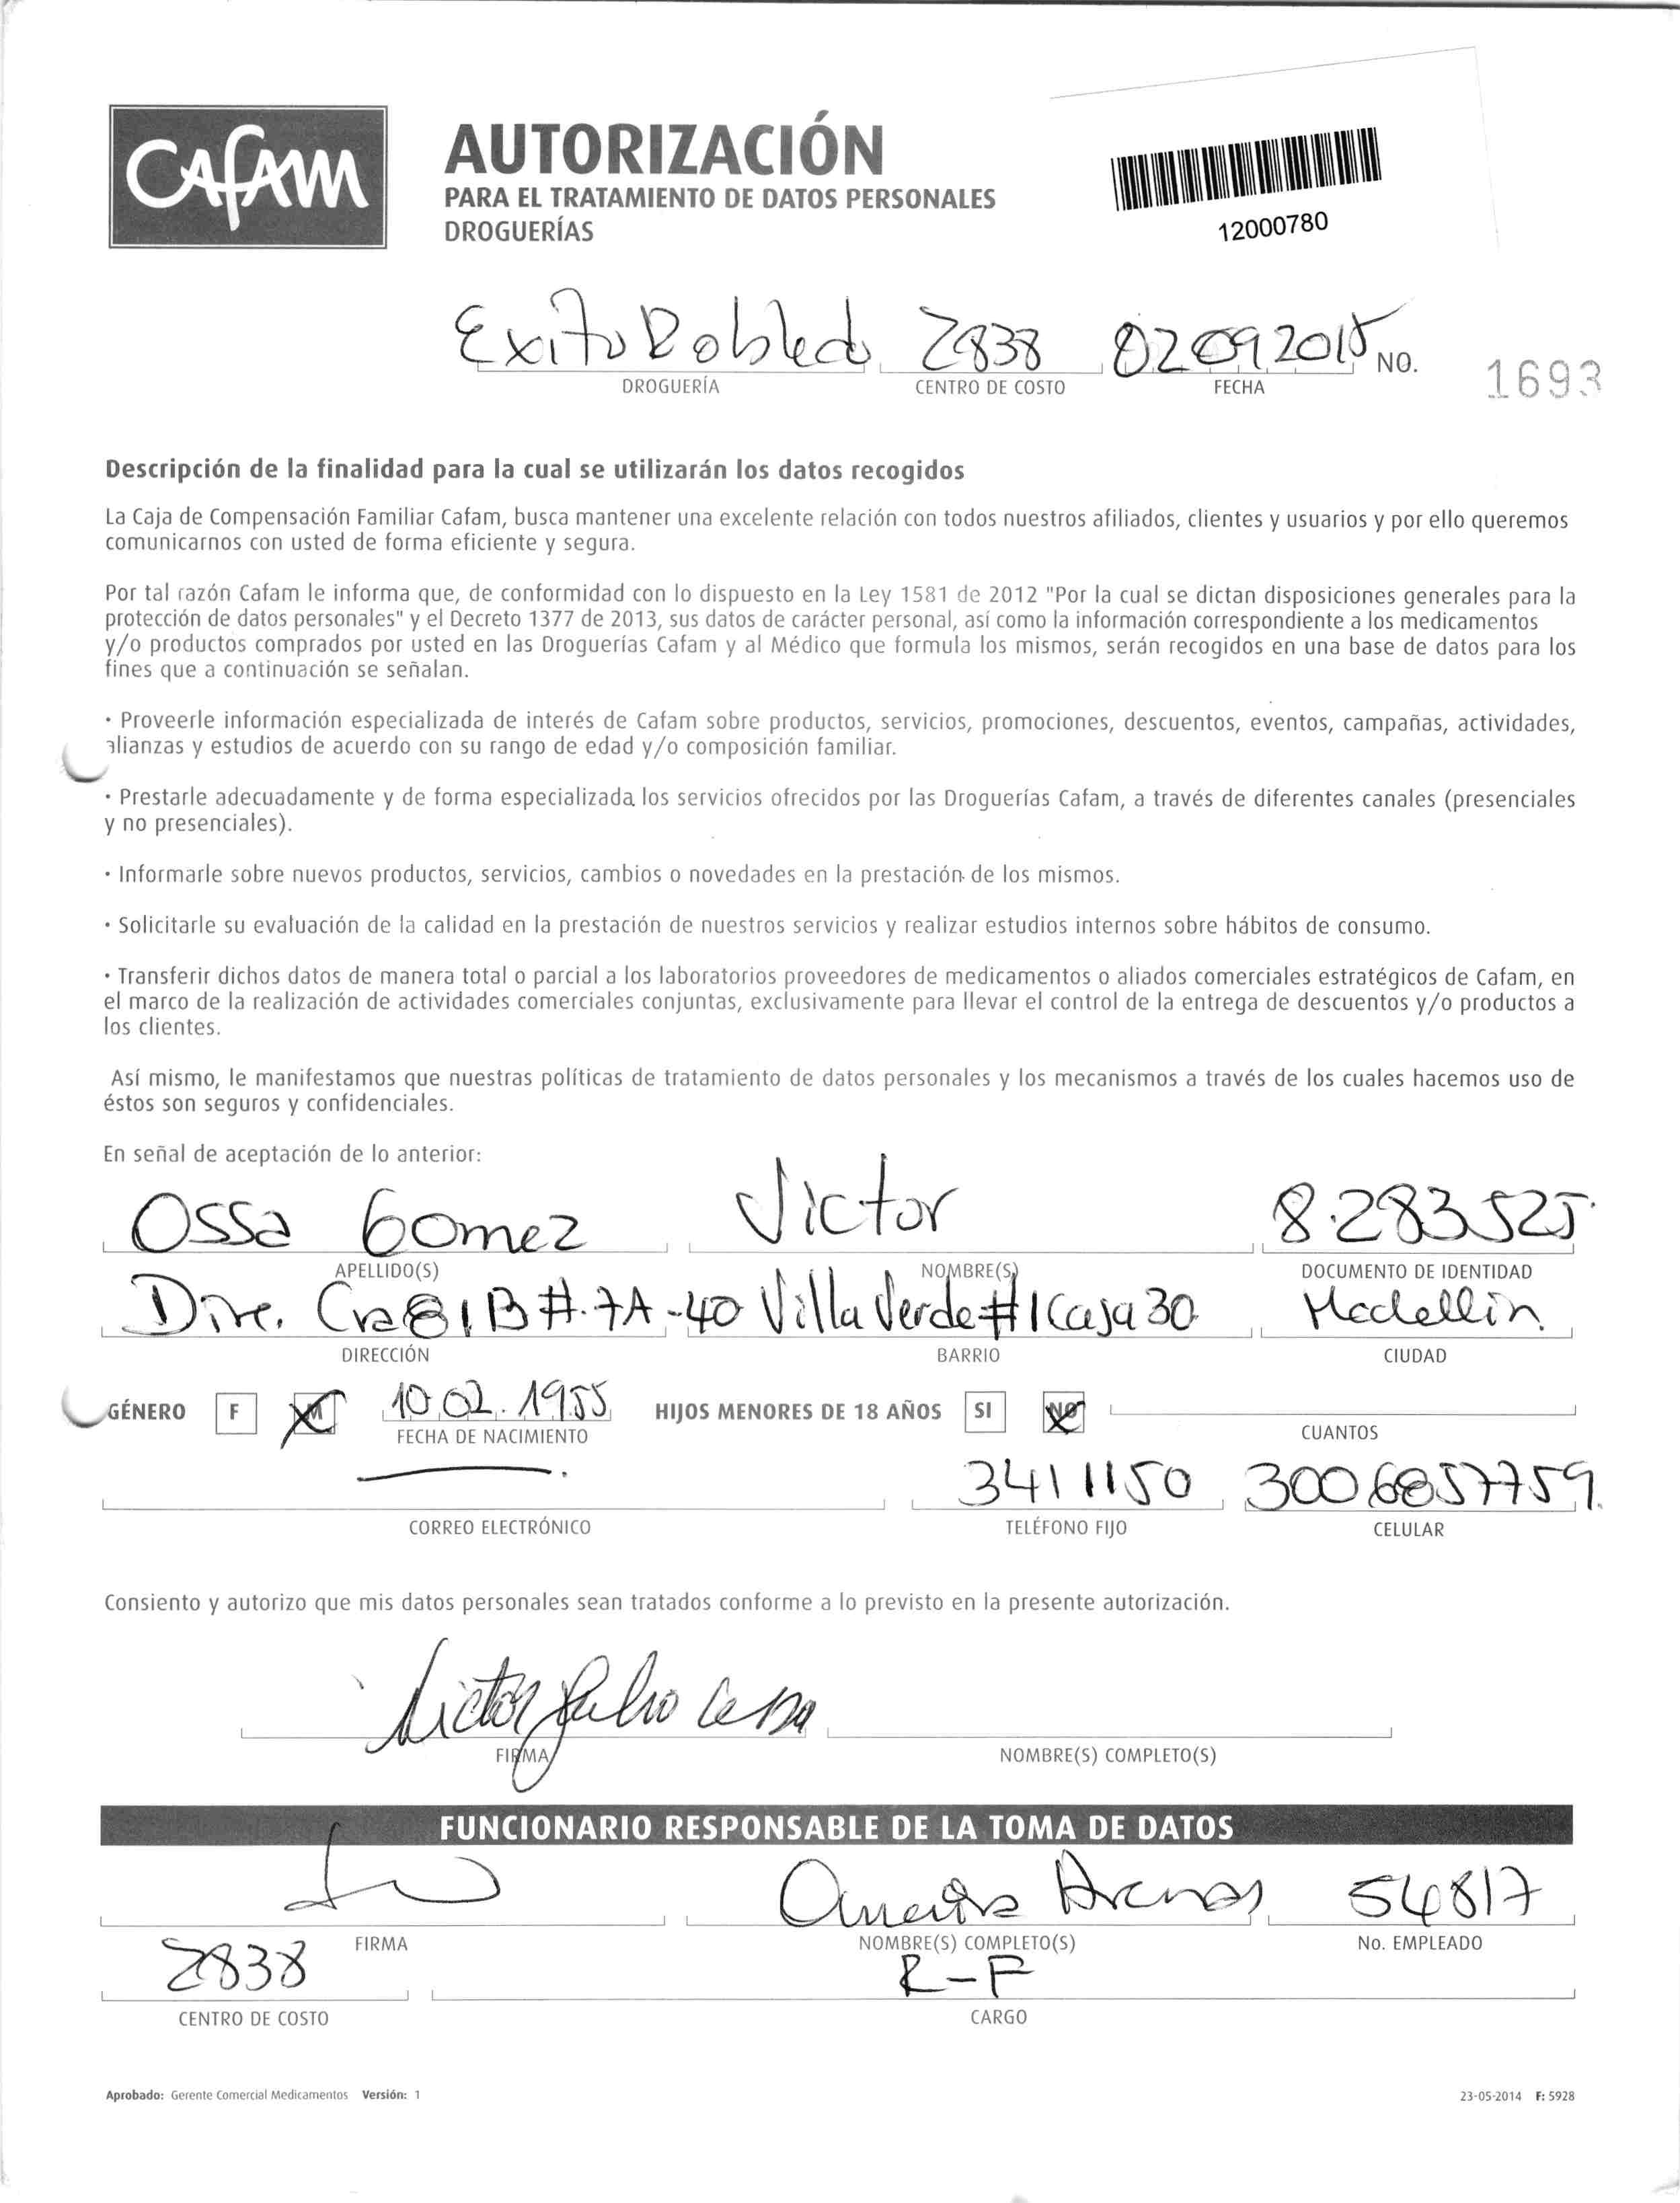 Cafam
AUTORIZACIÓN
PARA EL TRATAMIENTO DE DATOS PERSONALES
DROGUERÍAS
12000780
Exito Robledo 2838 02 09 2015 NO. 1693
DROGUERÍA CENTRO DE COSTO FECHA
Descripción de la finalidad para la cual se utilizarán los datos recogidos
La Caja de Compensación Familiar Cafam, busca mantener una excelente relación con todos nuestros afiliados, clientes y usuarios y por ello queremos
comunicarnos con usted de forma eficiente y segura.
Por tal razón Cafam le informa que, de conformidad con lo dispuesto en la Ley 1581 de 2012 "Por la cual se dictan disposiciones generales para la
protección de datos personales" y el Decreto 1377 de 2013, sus datos de carácter personal, así como la información correspondiente a los medicamentos
y/o productos comprados por usted en las Droguerías Cafam y al Médico que formula los mismos, serán recogidos en una base de datos para los
fines que a continuación se señalan.
· Proveerle información especializada de interés de Cafam sobre productos, servicios, promociones, descuentos, eventos, campañas, actividades,
alianzas y estudios de acuerdo con su rango de edad y/o composición familiar.
· Prestarle adecuadamente y de forma especializada los servicios ofrecidos por las Droguerías Cafam, a través de diferentes canales (presenciales
y no presenciales).
· Informarle sobre nuevos productos, servicios, cambios o novedades en la prestación de los mismos.
· Solicitarle su evaluación de la calidad en la prestación de nuestros servicios y realizar estudios internos sobre hábitos de consumo.
· Transferir dichos datos de manera total o parcial a los laboratorios proveedores de medicamentos o aliados comerciales estratégicos de Cafam, en
el marco de la realización de actividades comerciales conjuntas, exclusivamente para llevar el control de la entrega de descuentos y/o productos a
los clientes.
Así mismo, le manifestamos que nuestras políticas de tratamiento de datos personales y los mecanismos a través de los cuales hacemos uso de
éstos son seguros y confidenciales.
En señal de aceptación de lo anterior:
Ossa Gomez Victor 8.283.525
APELLIDO(S) NOMBRE(S) DOCUMENTO DE IDENTIDAD
Dire. Cra 81B #.7A-40 Villa Verde #1 Casa 30 Medellin
DIRECCIÓN BARRIO CIUDAD
GÉNERO F M 10.02.1955 HIJOS MENORES DE 18 AÑOS SI NO
FECHA DE NACIMIENTO CUANTOS
3411150 3006857759
CORREO ELECTRÓNICO TELÉFONO FIJO CELULAR
Consiento y autorizo que mis datos personales sean tratados conforme a lo previsto en la presente autorización.
Victor Julio
FIRMA NOMBRE(S) COMPLETO(S)
FUNCIONARIO RESPONSABLE DE LA TOMA DE DATOS
Arenas 54817
FIRMA NOMBRE(S) COMPLETO(S) No. EMPLEADO
2838 R-F
CENTRO DE COSTO CARGO
Aprobado: Gerente Comercial Medicamentos Versión: 1 23-05-2014 F: 5928